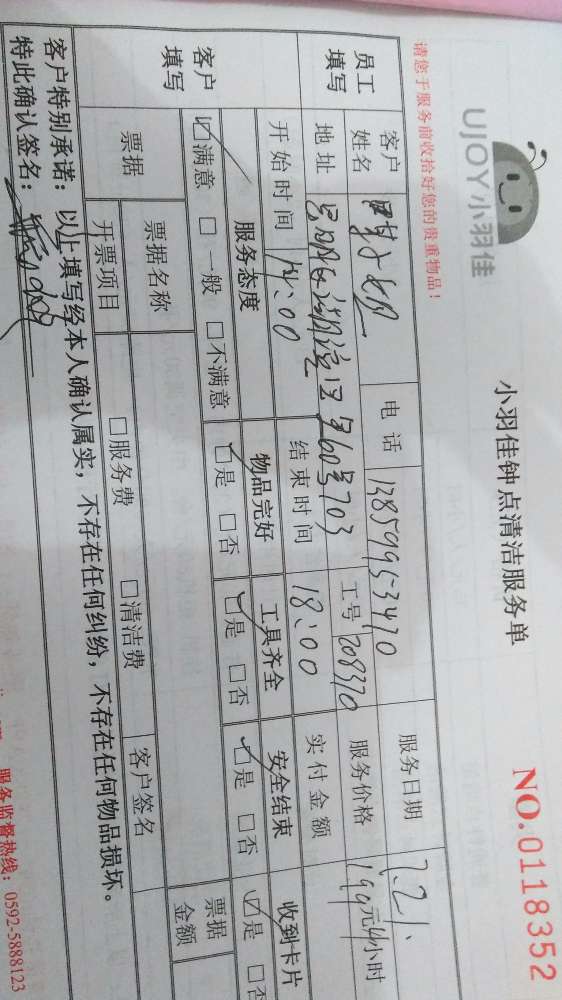 UJOY小羽佳
小羽佳钟点清洁服务单
NO.0118352
请您于服务前收拾好您的贵重物品!
员工填写
客户姓名
电话 13859953470
服务日期 7.21.
地址
703
工号 208370
服务价格 199元4小时
开始时间 14:00
结束时间 18:00
实付金额
客户填写
服务态度 物品完好 工具齐全 安全结束 收到卡片
☑满意 □一般 □不满意 ☑是 □否 ☑是 □否 ☑是 □否 ☑是 □否
票据
票据名称
票据金额
开票项目 □服务费 □清洁费 客户签名
客户特别承诺: 以上填写经本人确认属实,不存在任何纠纷,不存在任何物品损坏。
特此确认签名:
服务监督热线: 0592-5888123